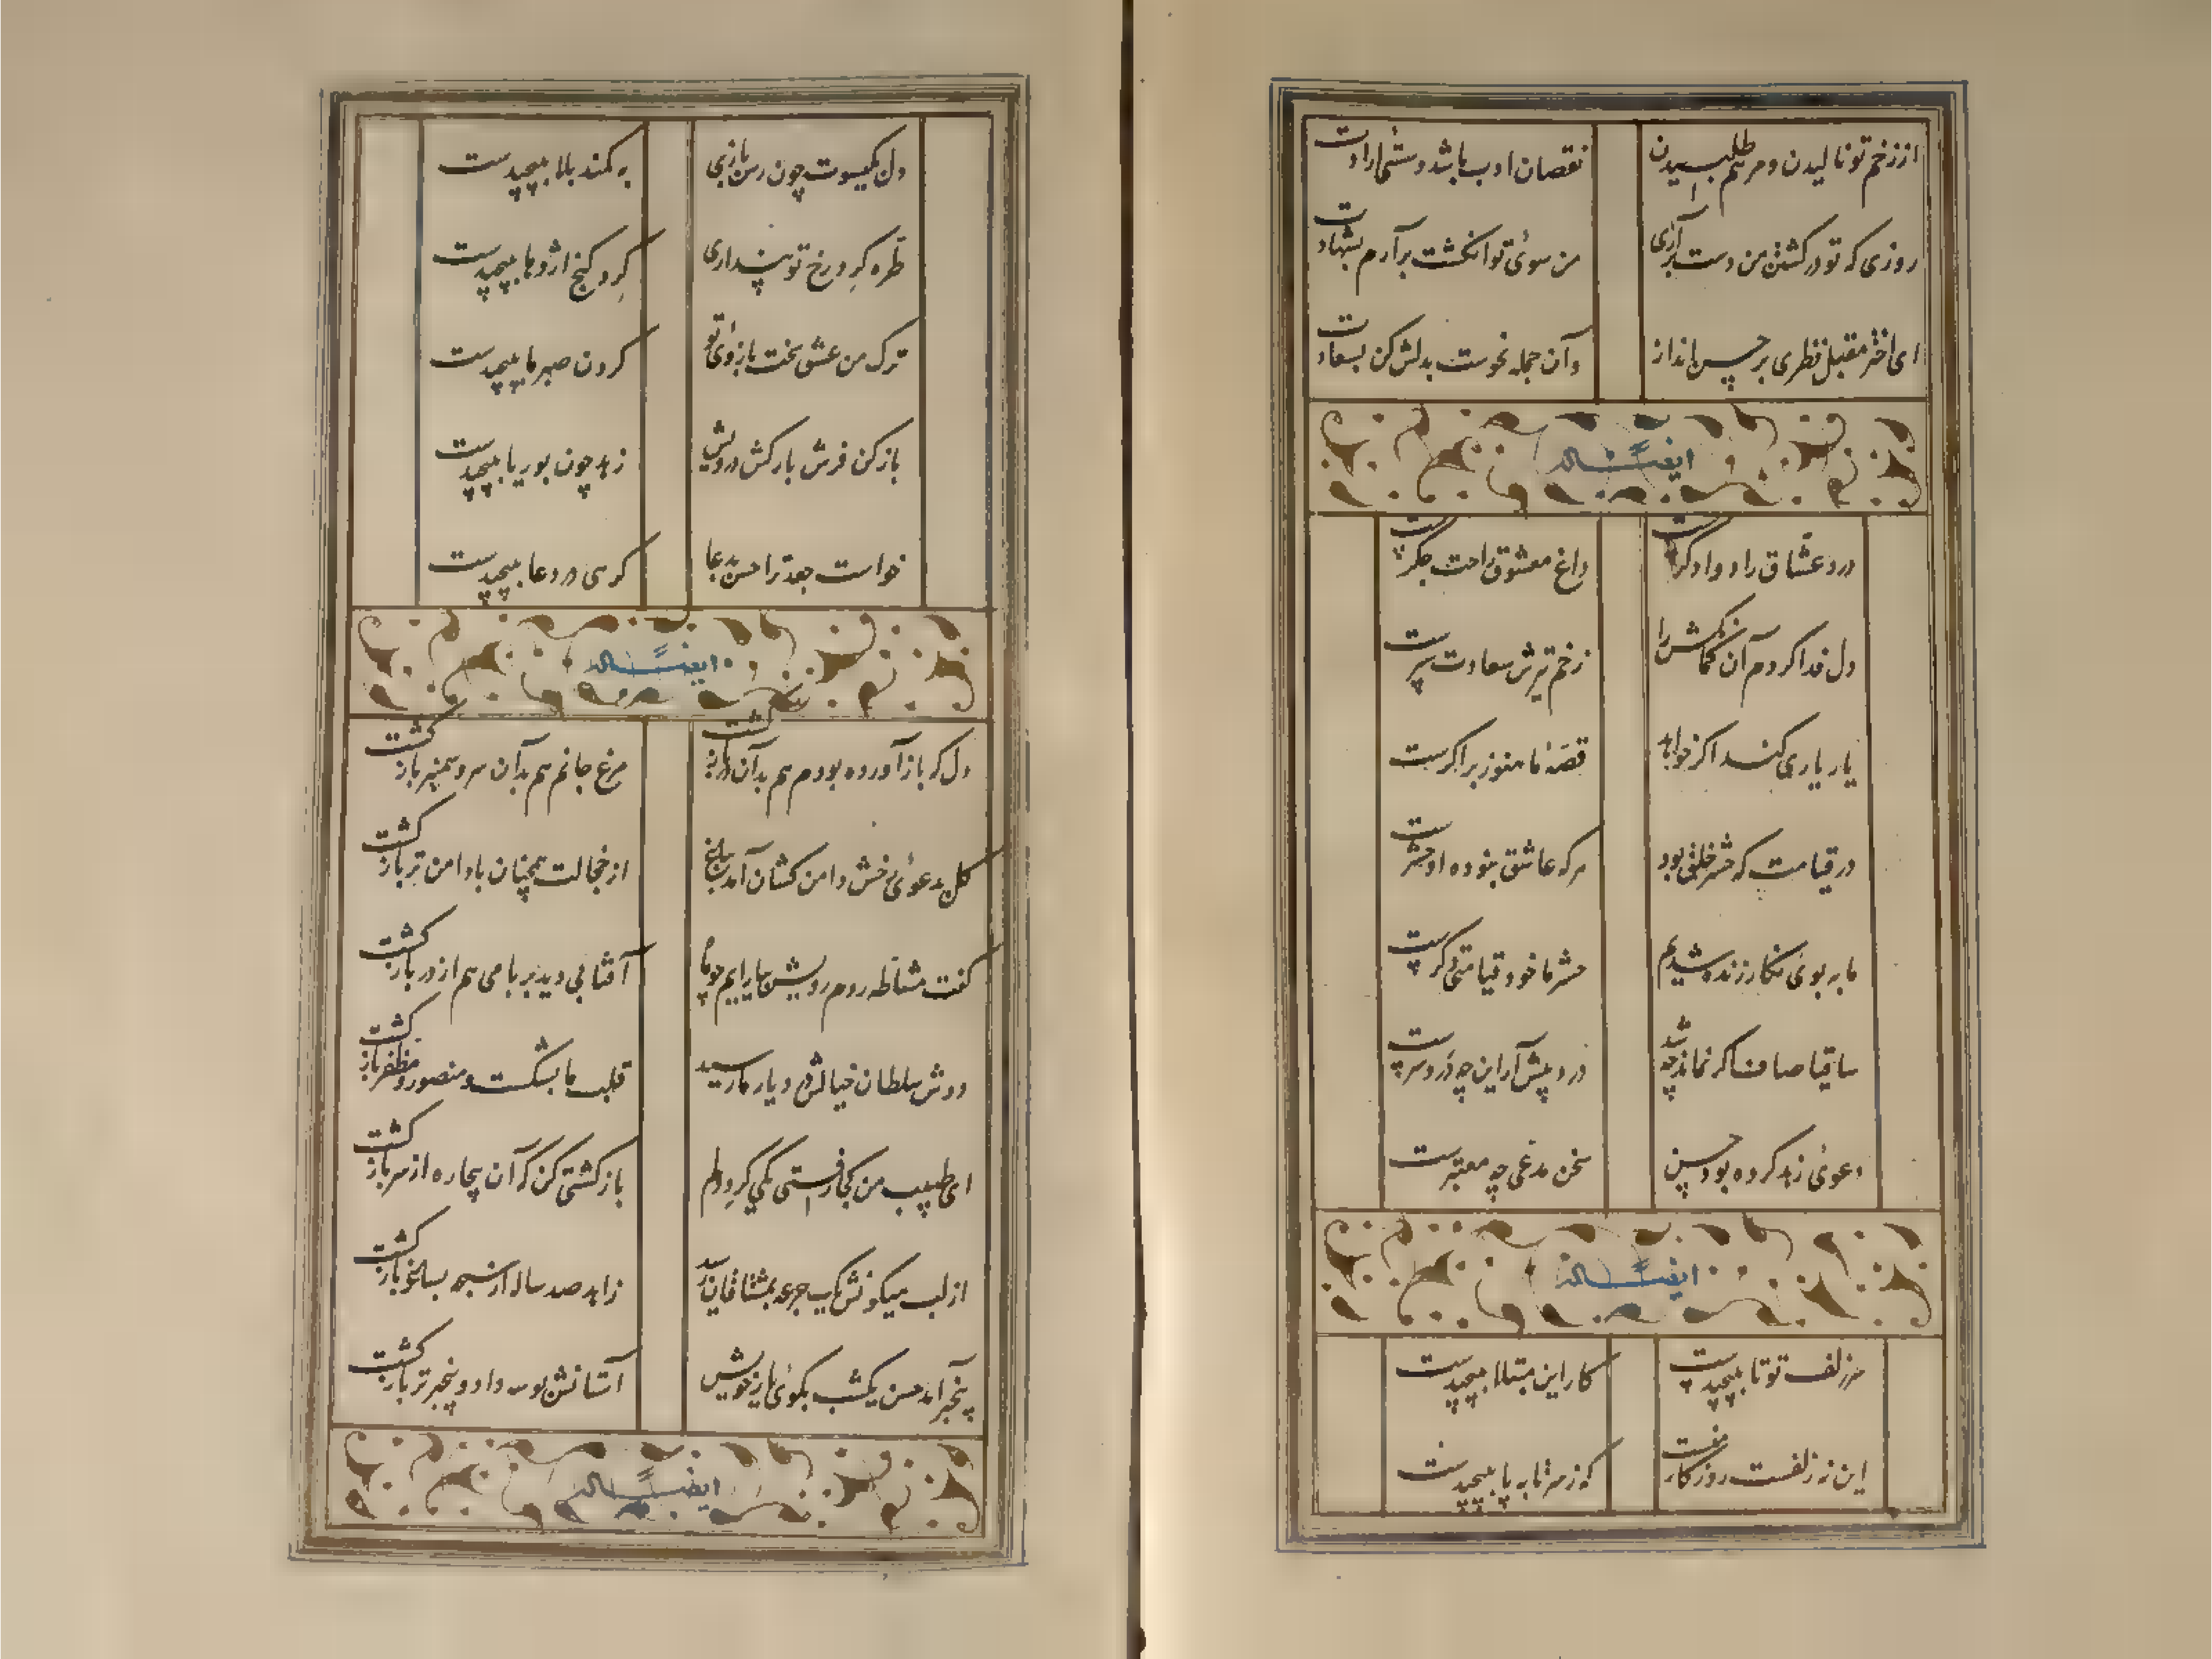 از زخم تو نالیدن و مرهم طلبیدن
نقصان ادب باشد و شی ارادت
روزی که تو در کشتن من دست برآری
من سوئی تو انکشت برآرم بشهادت
ای اختر مقبل نظری بر حسن انداز
وآن جمله نحوست بدلش کن بسعادت
ایضاً له
درد عشاق را دوا دکرست
داغ معشوق راحت جکرست
دل فدا کردم آن کماکش را
زخم تیرش سعادت سپرست
یار یاری کند اکر خواهد
قصهٔ ما هنوز برا کرست
در قیامت که حشر خلق بود
هرکه عاشق بنوده او حشرست
ما به بوئی نکار زنده شدیم
حشر ما خود قیامتی دکرست
ساقیا صاف اکر نماند چه شد
درد پیش آر این چه دردسرست
دعوئی زهد کرده بود حسن
سخن مدعی چه معتبرست
ایضاً له
سر زلف تو تا بپیچیدست
کار این مبتلا بپیچیدست
این نه زلفست روزکار منست
که ز سر تا به پا بپیچیدست
دل کیسوت چون رسن بازی
به کمند بلا بپیچیدست
طره کرد رخ تو پنداری
کرد کنج اژدها بپیچیدست
ترک من عشق سخت بازوئی تو
کردن صبر ما بپیچیدست
باز کن فرش بارکش درویش
زهد چون بوریا بپیچیدست
خواست جعد ترا حسن بدعا
کرسی در دعا بپیچیدست
ایضاً له
دل که باز آورده بودم هم بدآن دلبر باز کشت
مرغ جانم هم بدآن سرو سمنبر باز کشت
کل بدعوئی رخش دامن کشان آمد بباغ
از خجالت همچنان با دامن تر باز کشت
کفت مشاطه روم رویش بیارایم چو ماه
آفتابی دید بر بامی هم از در باز کشت
دوش سلطان خیالش در دیار ما رسید
قلب ما بشکست و منصور و مظفر باز کشت
ای طبیب من کجا رفستی یکی کرد دلم
باز کشتی کن که آن بیچاره از سر باز کشت
از لب میکونش یک جرعه بمشتاقان رسید
زاهد صد ساله از تسبیح بساغر باز کشت
بیخبر آمد حسن یکشب بکوئی یار خویش
آستانش بوسه داد و بیخبر تر باز کشت
ایضاً له